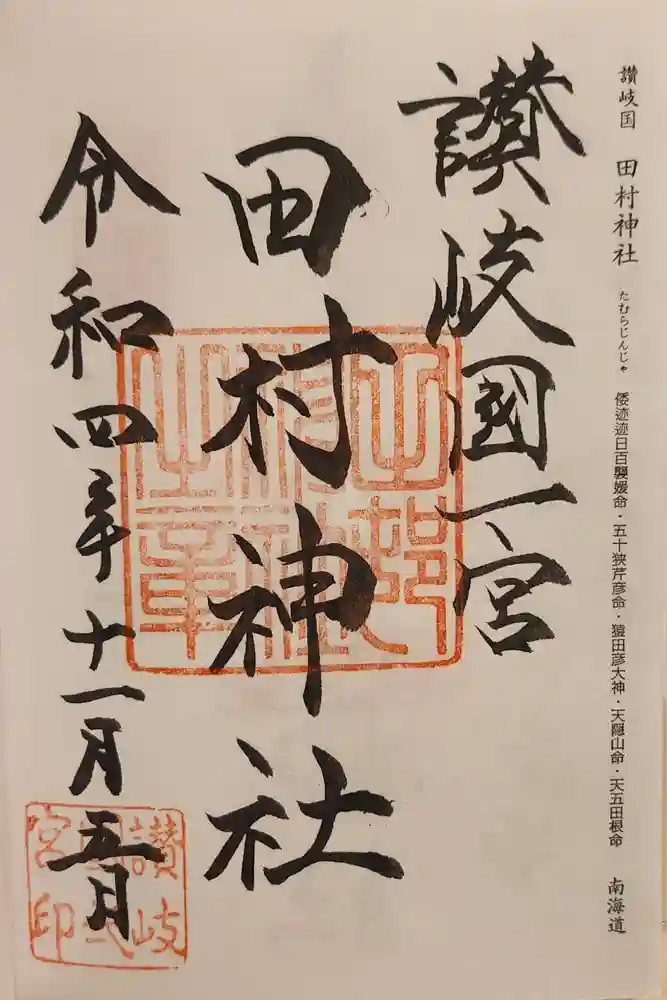 讃岐国 田村神社 たむらじんじゃ 倭迹迹日百襲媛命・五十狭芹彦命・猿田彦大神・天隠山命・天五田根命 南海道
讃岐國一宮
田村神社
令和四年十一月五日
讃岐
宮印